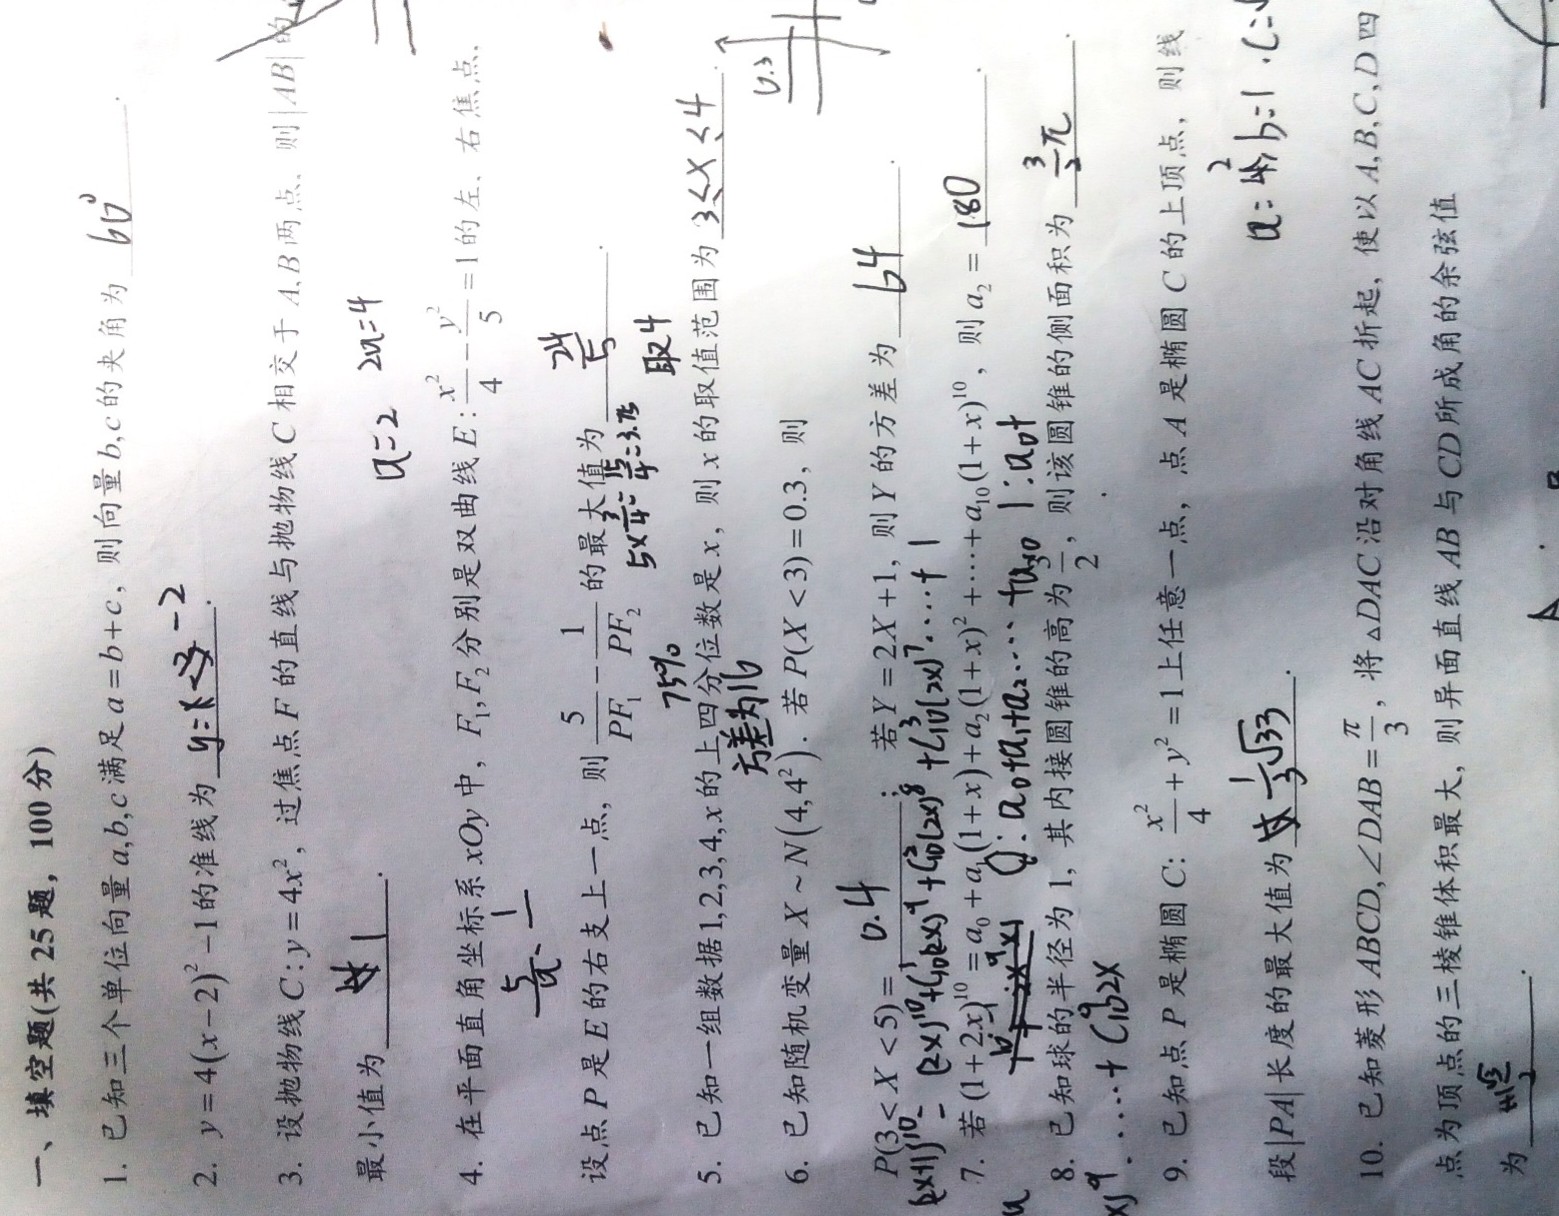 一、填空题(共 25 题，100 分)
1. 已知三个单位向量 a,b,c 满足 a=b+c，则向量 b,c 的夹角为 60° .
2. y=4(x-2)²-1 的准线为 y= -2 .
3. 设抛物线 C:y=4x²，过焦点 F 的直线与抛物线 C 相交于 A,B 两点、则|AB|的
最小值为 1 .
a=2 2a=4
4. 在平面直角坐标系 xOy 中，F₁,F₂ 分别是双曲线 E: x²/4 - y²/5 =1 的左、右焦点、
设点 P 是 E 的右支上一点，则 5/PF₁ - 1/PF₂ 的最大值为 .
75% 取4
5. 已知一组数据 1,2,3,4,x 的上四分位数是 x，则 x 的取值范围为 3≤x≤4 .
方差为16
6. 已知随机变量 X ~ N(4,4²). 若 P(X<3)=0.3，则
0.3
P(3<X<5)= 0.4 ；若 Y=2X+1，则 Y 的方差为 64 .
7. 若 (1+2x)¹⁰ = a₀ + a₁(1+x) + a₂(1+x)² + ⋯⋯ + a₁₀(1+x)¹⁰，则 a₂ = 180 .
8. 已知球的半径为 1，其内接圆锥的高为 3/2，则该圆锥的侧面积为 3/2 π .
9. 已知点 P 是椭圆 C: x²/4 + y² =1 上任意一点，点 A 是椭圆 C 的上顶点，则线
段|PA|长度的最大值为 .
10. 已知菱形 ABCD,∠DAB= π/3，将△DAC 沿对角线 AC 折起，使以 A,B,C,D 四
点为顶点的三棱锥体积最大，则异面直线 AB 与 CD 所成角的余弦值
为 .